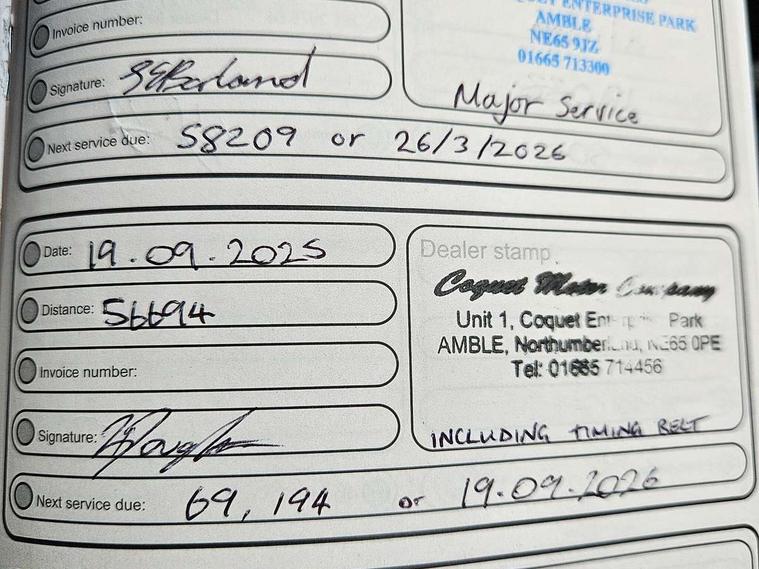 ENTERPRISE PARK
AMBLE
NE65 9JZ
01665 713300
Invoice number:
Signature:
Major Service
Next service due: 58209 or 26/3/2026
Date: 19.09.2025
Dealer stamp
Coquet Motor Company
Distance: 56694
Unit 1, Coquet Park
AMBLE, NE65 0PE
Tel: 01665 714456
Invoice number:
Signature:
INCLUDING TIMING BELT
Next service due: 69,194 or 19.09.2026